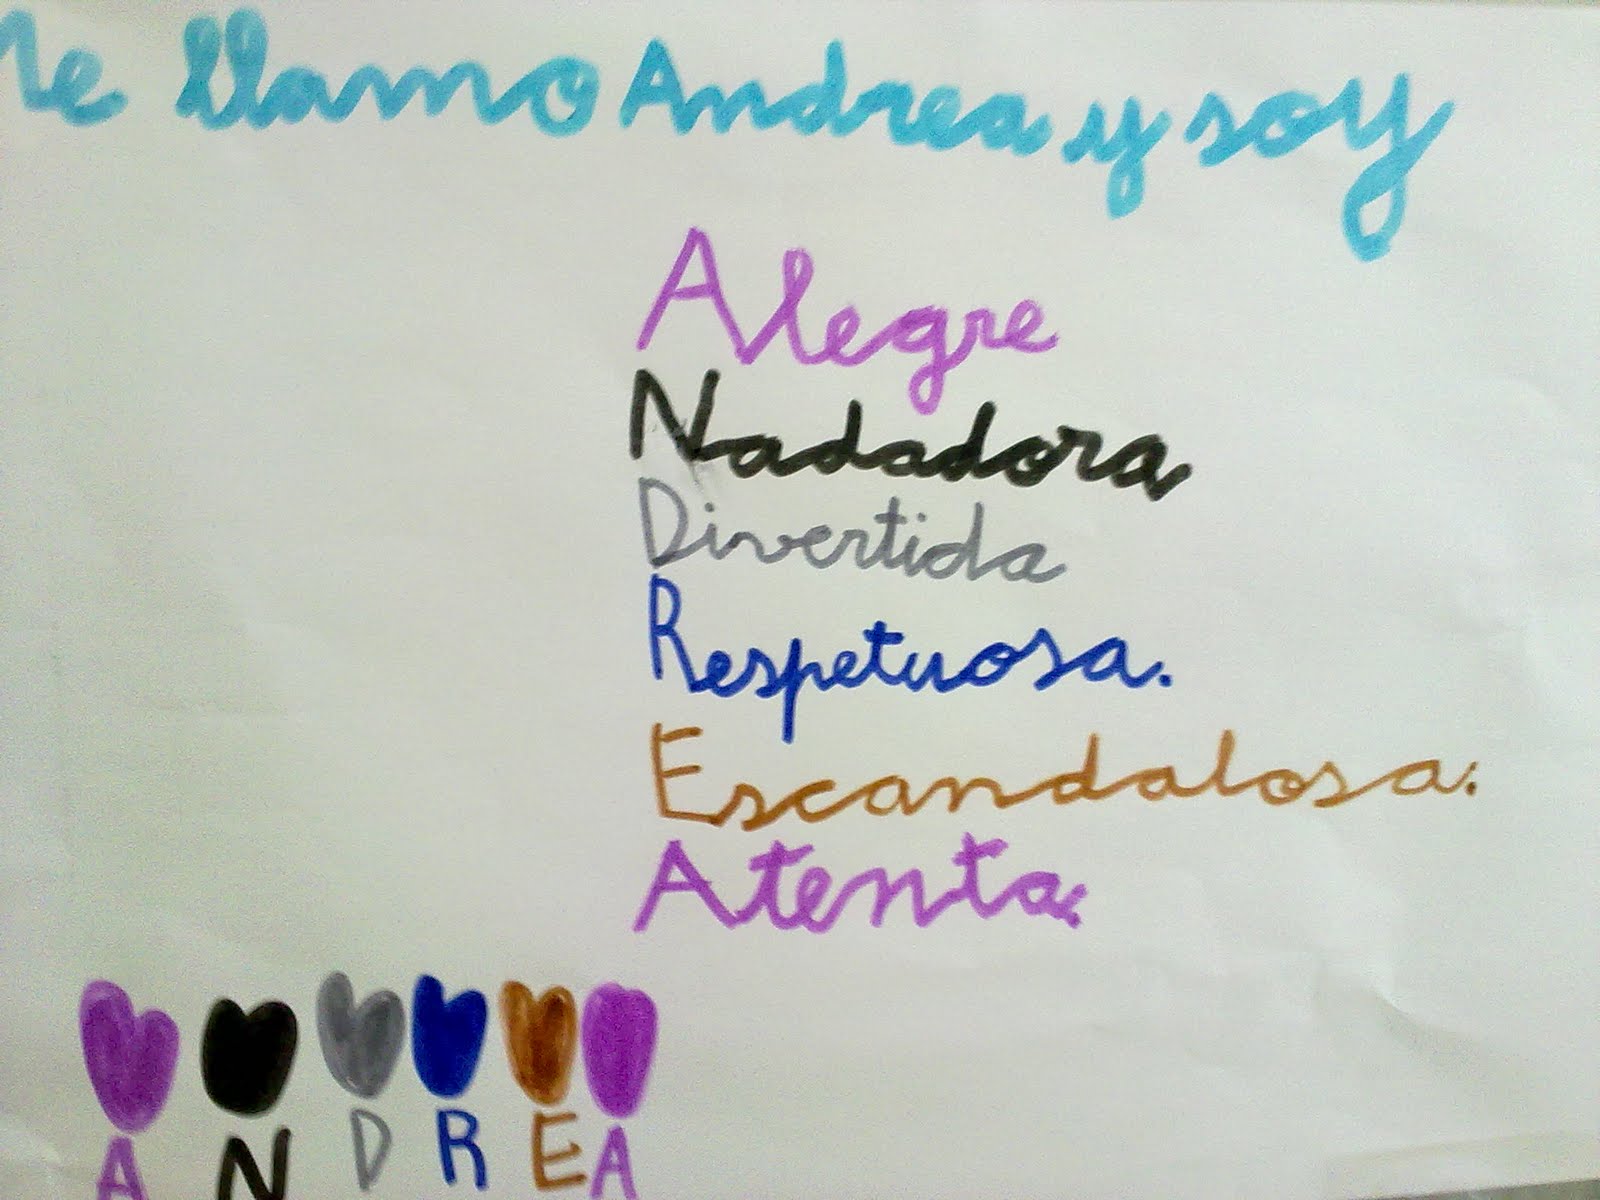 Me llamo Andrea y soy
Alegre
Nadadora
Divertida
Respetuosa.
Escandalosa.
Atenta.
A N D R E A